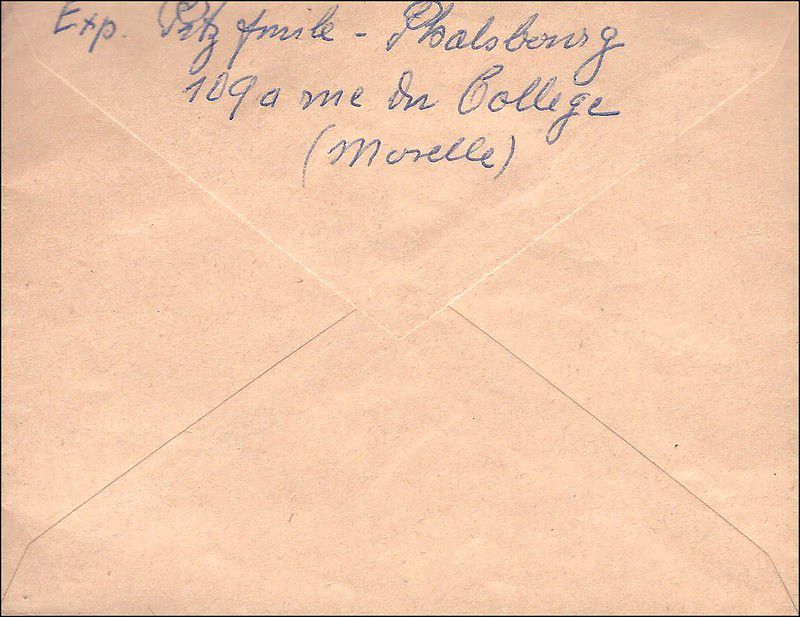 Exp. Pitz Emile - Phalsbourg
109a rue du College
(Moselle)